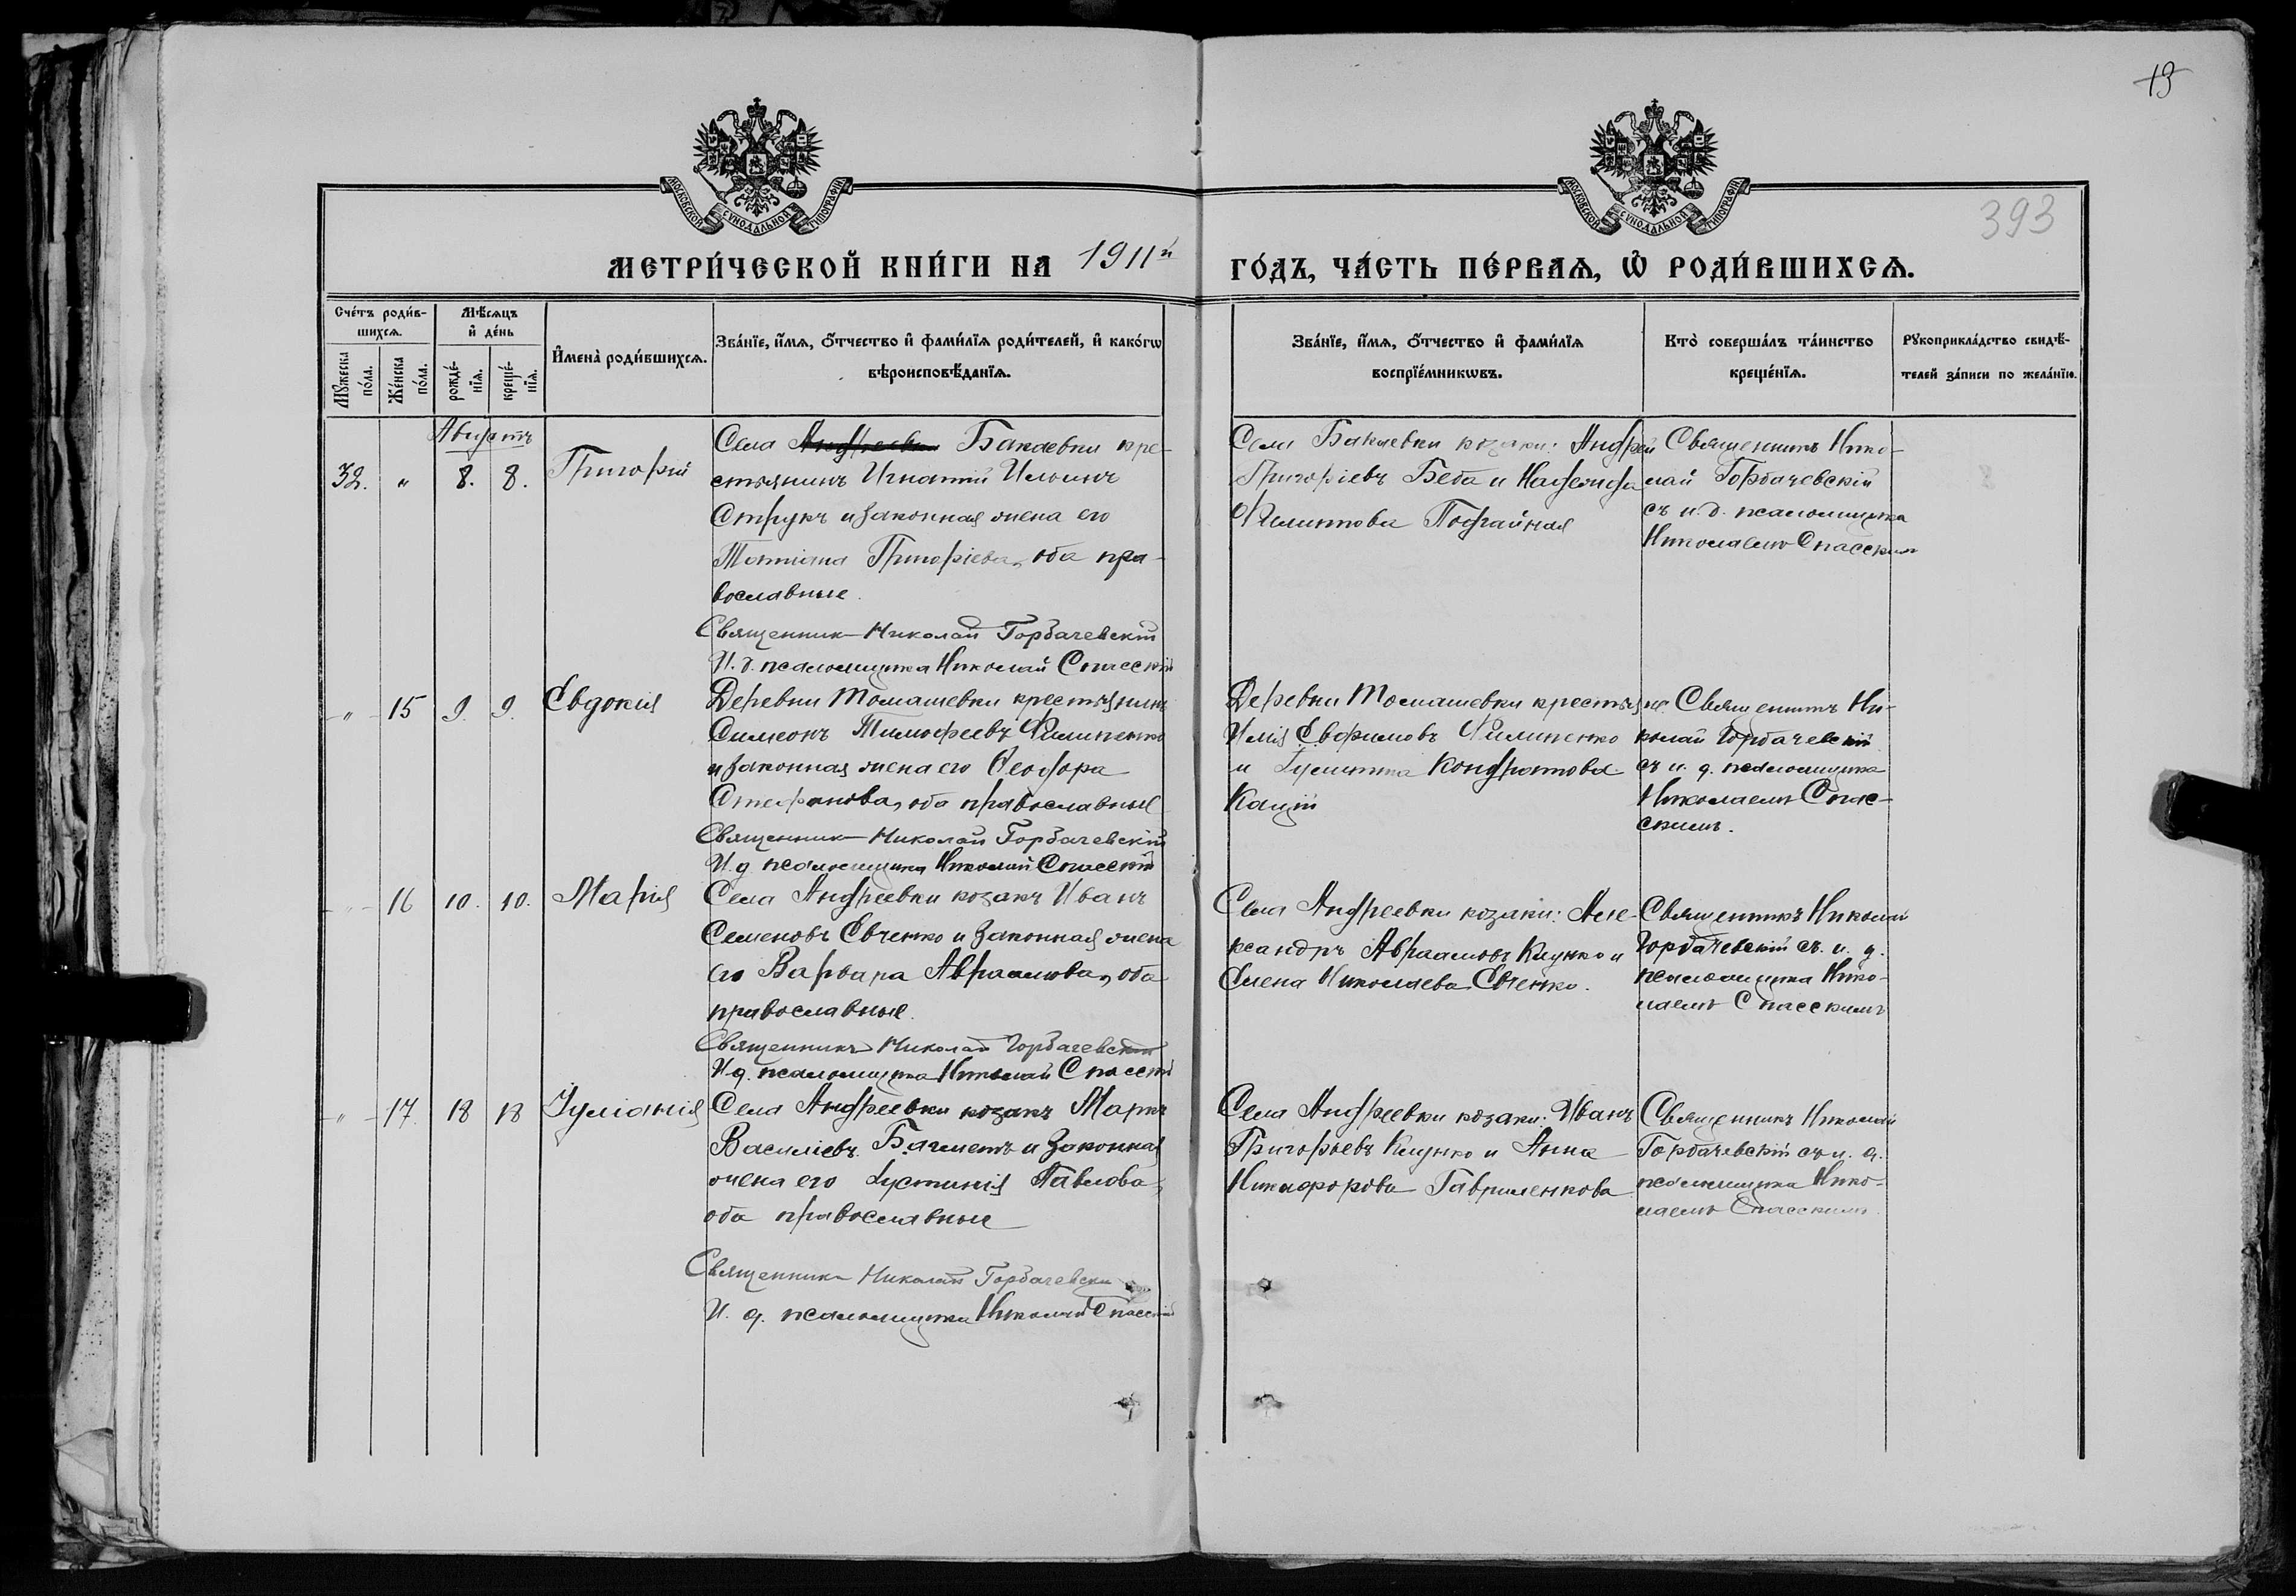 19
393
МОСКОВСКОЙ СѴНОДАЛЬНОЙ ТИПОГРАФІИ
МОСКОВСКОЙ СѴНОДАЛЬНОЙ ТИПОГРАФІИ
МЕТРИ́ЧЕСКОЙ КНИ́ГИ НА 1911й ГО́ДЪ, ЧА́СТЬ ПЕ́РВАѦ, Ѡ҆ РОДИ́ВШИХСѦ.
Сче́тъ роди́в-
шихсѧ.
Мꙋ́жеска по́ла.
Же́нска по́ла.
Мѣ́сѧцъ
и҆ де́нь
рожде́-
нїѧ.
креще́-
нїѧ.
И҆мена̀ роди́вшихсѧ.
Зва́нїе, и҆́мѧ, ѻ҆́тчество и҆ фами́лїѧ роди́телей, и҆ како́гѡ
вѣроисповѣ́данїѧ.
Зва́нїе, и҆́мѧ, ѻ҆́тчество и҆ фами́лїѧ
воспрїе́мникѡвъ.
Кто̀ соверша́лъ та́инство
креще́нїѧ.
Рꙋкоприкла́дство свидѣ́-
телей за́писи по жела́нїю.
Августъ
32. " 8. 8. Григорій
Села Андреевки Бакаевки кре-
стьянинъ Игнатій Ильинъ
Струкъ и законная жена его
Татіана Григоріева, оба пра-
вославные.
Священникъ Николай Горбачевскій
И. д. псаломщика Николай Спасскій
Села Бакаевки козаки: Андрей
Григоріевъ Беба и Надежда
Филиппова
Священникъ Нико-
лай Горбачевскій
съ и. д. псаломщика
Николаемъ Спасским
" 15 9. 9. Евдокія
Деревни Томашевки крестьянинъ
Симеонъ Тимофеевъ Филипенко
и законная жена его Феодора
Стефанова, оба православные
Священникъ Николай Горбачевскій
И. д псаломщика Николай Спасскій
Деревни Томашевки крестьяне
Илія Ефримовъ Филипенко
и Іулитта Кондратова
Кацій
Священникъ Ни-
колай Горбачевскій
съ и. д. псаломщика
Николаемъ Спас-
скимъ.
" 16 10. 10. Марія
Села Андреевки козакъ Иванъ
Семеновъ Евченко и законная жена
его Варвара Авраамова, оба
православные.
Священникъ Николай Горбачевскій
И д. псаломщика Николай Спасскій
Села Андреевки козаки: Але-
ксандръ Авраамовъ Клунко и
Елена Николаева Евченко.
Священникъ Николай
Горбачевскій съ. и. д.
псаломщика Нико-
лаемъ Спасскимъ
" 17. 18 18 Іуліанія
Села Андреевки козакъ Маркъ
Василіевъ и законная
жена его Іустинія Павлова,
оба православные
Священникъ Николай Горбачевскій
И. д. псаломщика Николай Спасскій
Села Андреевки козаки: Иванъ
Григорьевъ Клунко и Анна
Никифорова Гавриленкова
Священникъ Николай
Горбачевскій съ и. д.
псаломщика Нико-
лаемъ Спасскимъ.